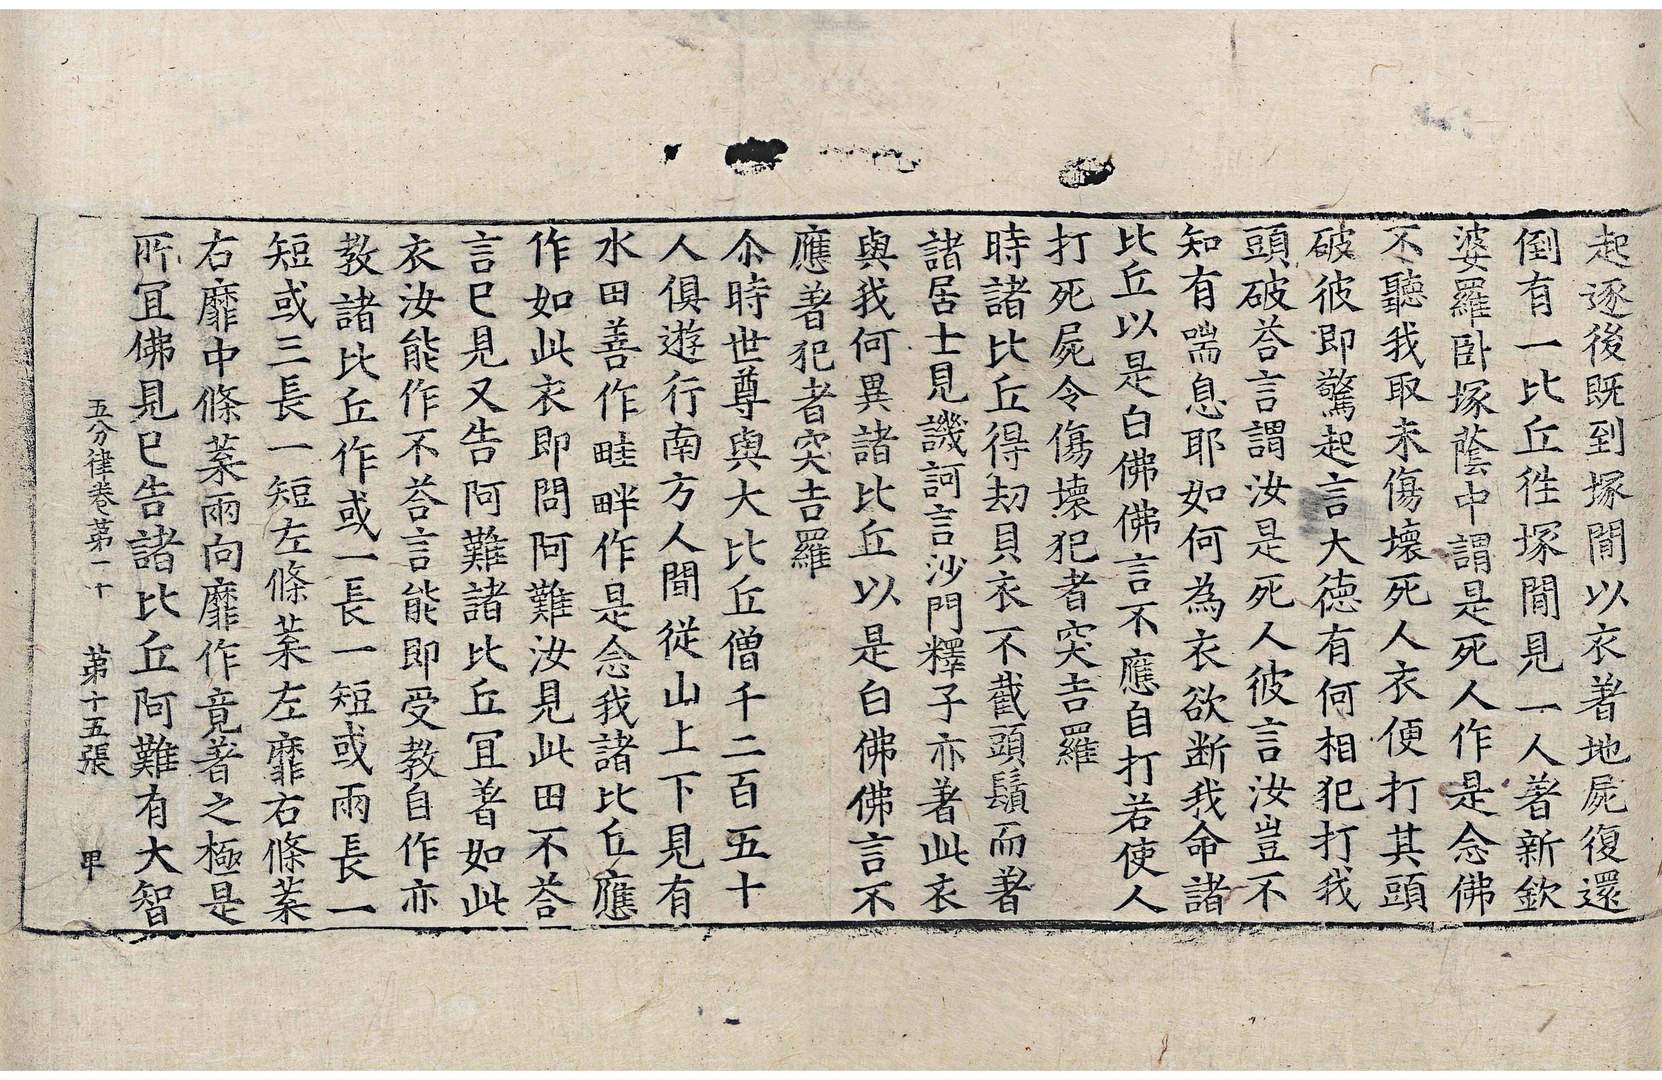 起逐後既到塚間以衣著地屍復還
倒有一比丘徃塚間見一人著新欽
婆羅卧塚蔭中謂是死人作是念佛
不聽我取未傷壞死人衣便打其頭
破彼即驚起言大德有何相犯打我
頭破荅言謂汝是死人彼言汝豈不
知有喘息耶如何為衣欲断我命諸
比丘以是白佛佛言不應自打若使人
打死屍令傷壞犯者突吉羅
時諸比丘得劫貝衣不截頭鬚而著
諸居士見譏訶言沙門釋子亦著此衣
與我何異諸比丘以是白佛佛言不
應著犯者突吉羅
尒時世尊與大比丘僧千二百五十
人俱遊行南方人間從山上下見有
水田善作畦畔作是念我諸比丘應
作如此衣即問阿難汝見此田不荅
言已見又告阿難諸比丘冝著如此
衣汝能作不荅言能即受教自作亦
教諸比丘作或一長一短或兩長一
短或三長一短左條葉左靡右條葉
右靡中條葉兩向靡作竟著之極是
所冝佛見已告諸比丘阿難有大智
五分律卷苐二十 苐十五張 甲